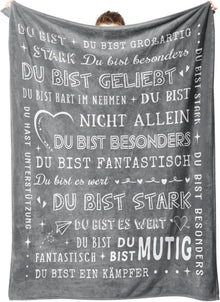 DU BIST DU BIST GROßARTIG
STARK Du bist besonders
DU BIST GELIEBT
DU BIST HART IM NEHMEN DU BIST
NICHT ALLEIN
DU BIST BESONDERS
DU BIST FANTASTISCH
Du bist es wert
DU BIST STARK
DU BIST ES WERT
DU BIST DU BIST MUTIG
FANTASTISCH
DU BIST EIN KÄMPFER
DU HAST UNTERSTÜTZUNG
DU BIST STARK
DU BIST BESONDERS